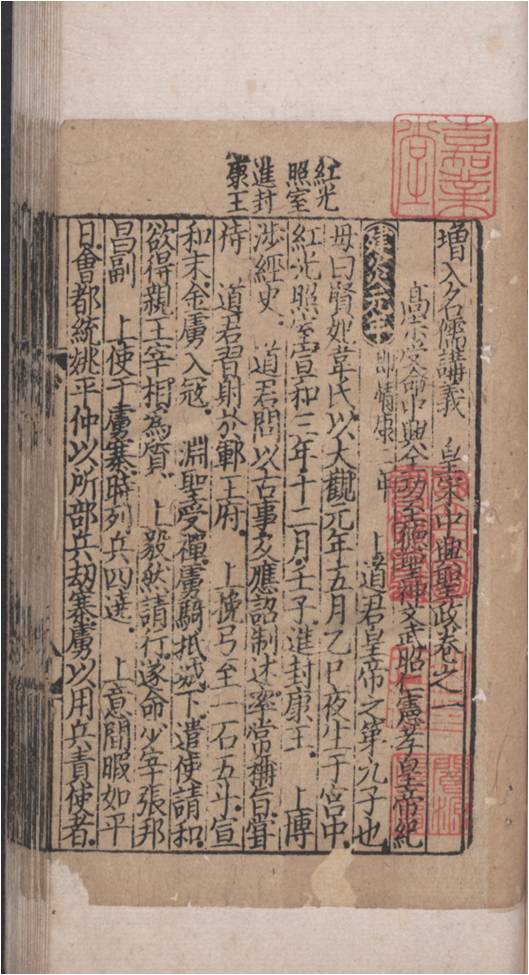 紅光
照室
進封
康王
增入名儒講義 皇宋中興聖政卷之一
高宗受命中興全功至德聖神文武昭仁憲孝皇帝紀
建炎元年 即靖康二年 上道君皇帝之第九子也
母曰賢妃韋氏以大觀元年五月乙巳夜生于宮中
紅光照室宣和三年十二月壬子進封康王 上博
涉經史 道君問以古事多應詔制述率常稱旨嘗
侍 道君習射於鄆王府 上挽弓至一石五斗宣
和末金虜入寇 淵聖受禪虜騎抵城下遣使請和
欲得親王宰相為質 上毅然請行遂命少宰張邦
昌副 上使于虜寨時列兵四遶 上意閒暇如平
日會都統姚平仲以所部兵劫寨虜以用兵責使者
嘉業堂